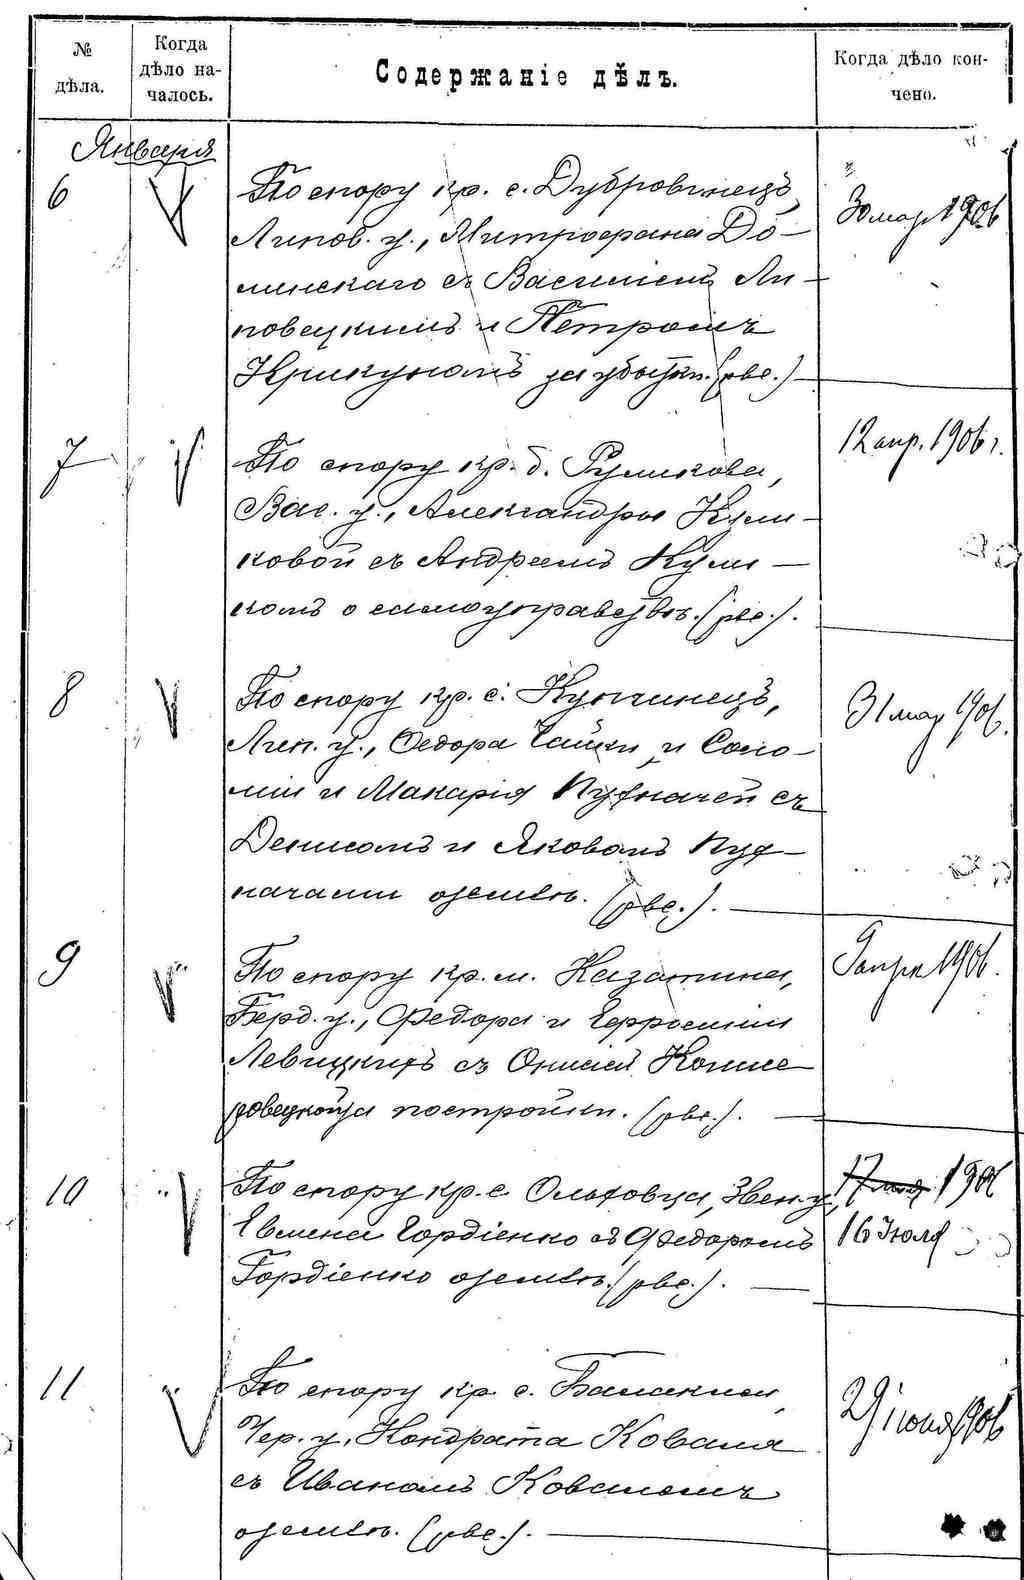 № дѣла.
Когда дѣло на-
чалось.
Содержаніе дѣлъ.
Когда дѣло кон-
чено.
Января
6
По спору кр. с. Дубровинецъ,
Липов. у., Митрофана До-
линскаго съ Василіемъ Ли-
повецкимъ и Петромъ
Крикуномъ за убытки. (рве.)
30 мар 1906
7
По спору кр. д. Руликова,
Вас. у., Александры Кули-
ковой съ Андреемъ Кули-
комъ о самоуправствѣ. (рве.).
12 апр. 1906 г.
8
По спору кр. с. Купчинецъ,
Лип. у., Федора Чайки и Соло-
міи и Макарія Пузначей съ
Денисомъ и Яковомъ Пуз-
начами о землѣ. (рве.).
31 мар 1906.
9
По спору кр. м. Казатина,
Берд. у., Федора и
Левицкихъ съ
за постройки. (рве.).
9 апрля 1906.
10
По спору кр. с. Ольховца, Звен. у,
Евмена Гордіенко съ Федоромъ
Гордіенко о землѣ. (рве.).
17 мая 1906
16 Іюля
11
По спору кр. с. Балаклеи
Чер. у, Кондрата Коваля
съ Иваномъ Ковалемъ
о землѣ. (рве.).
29 іюня 1906